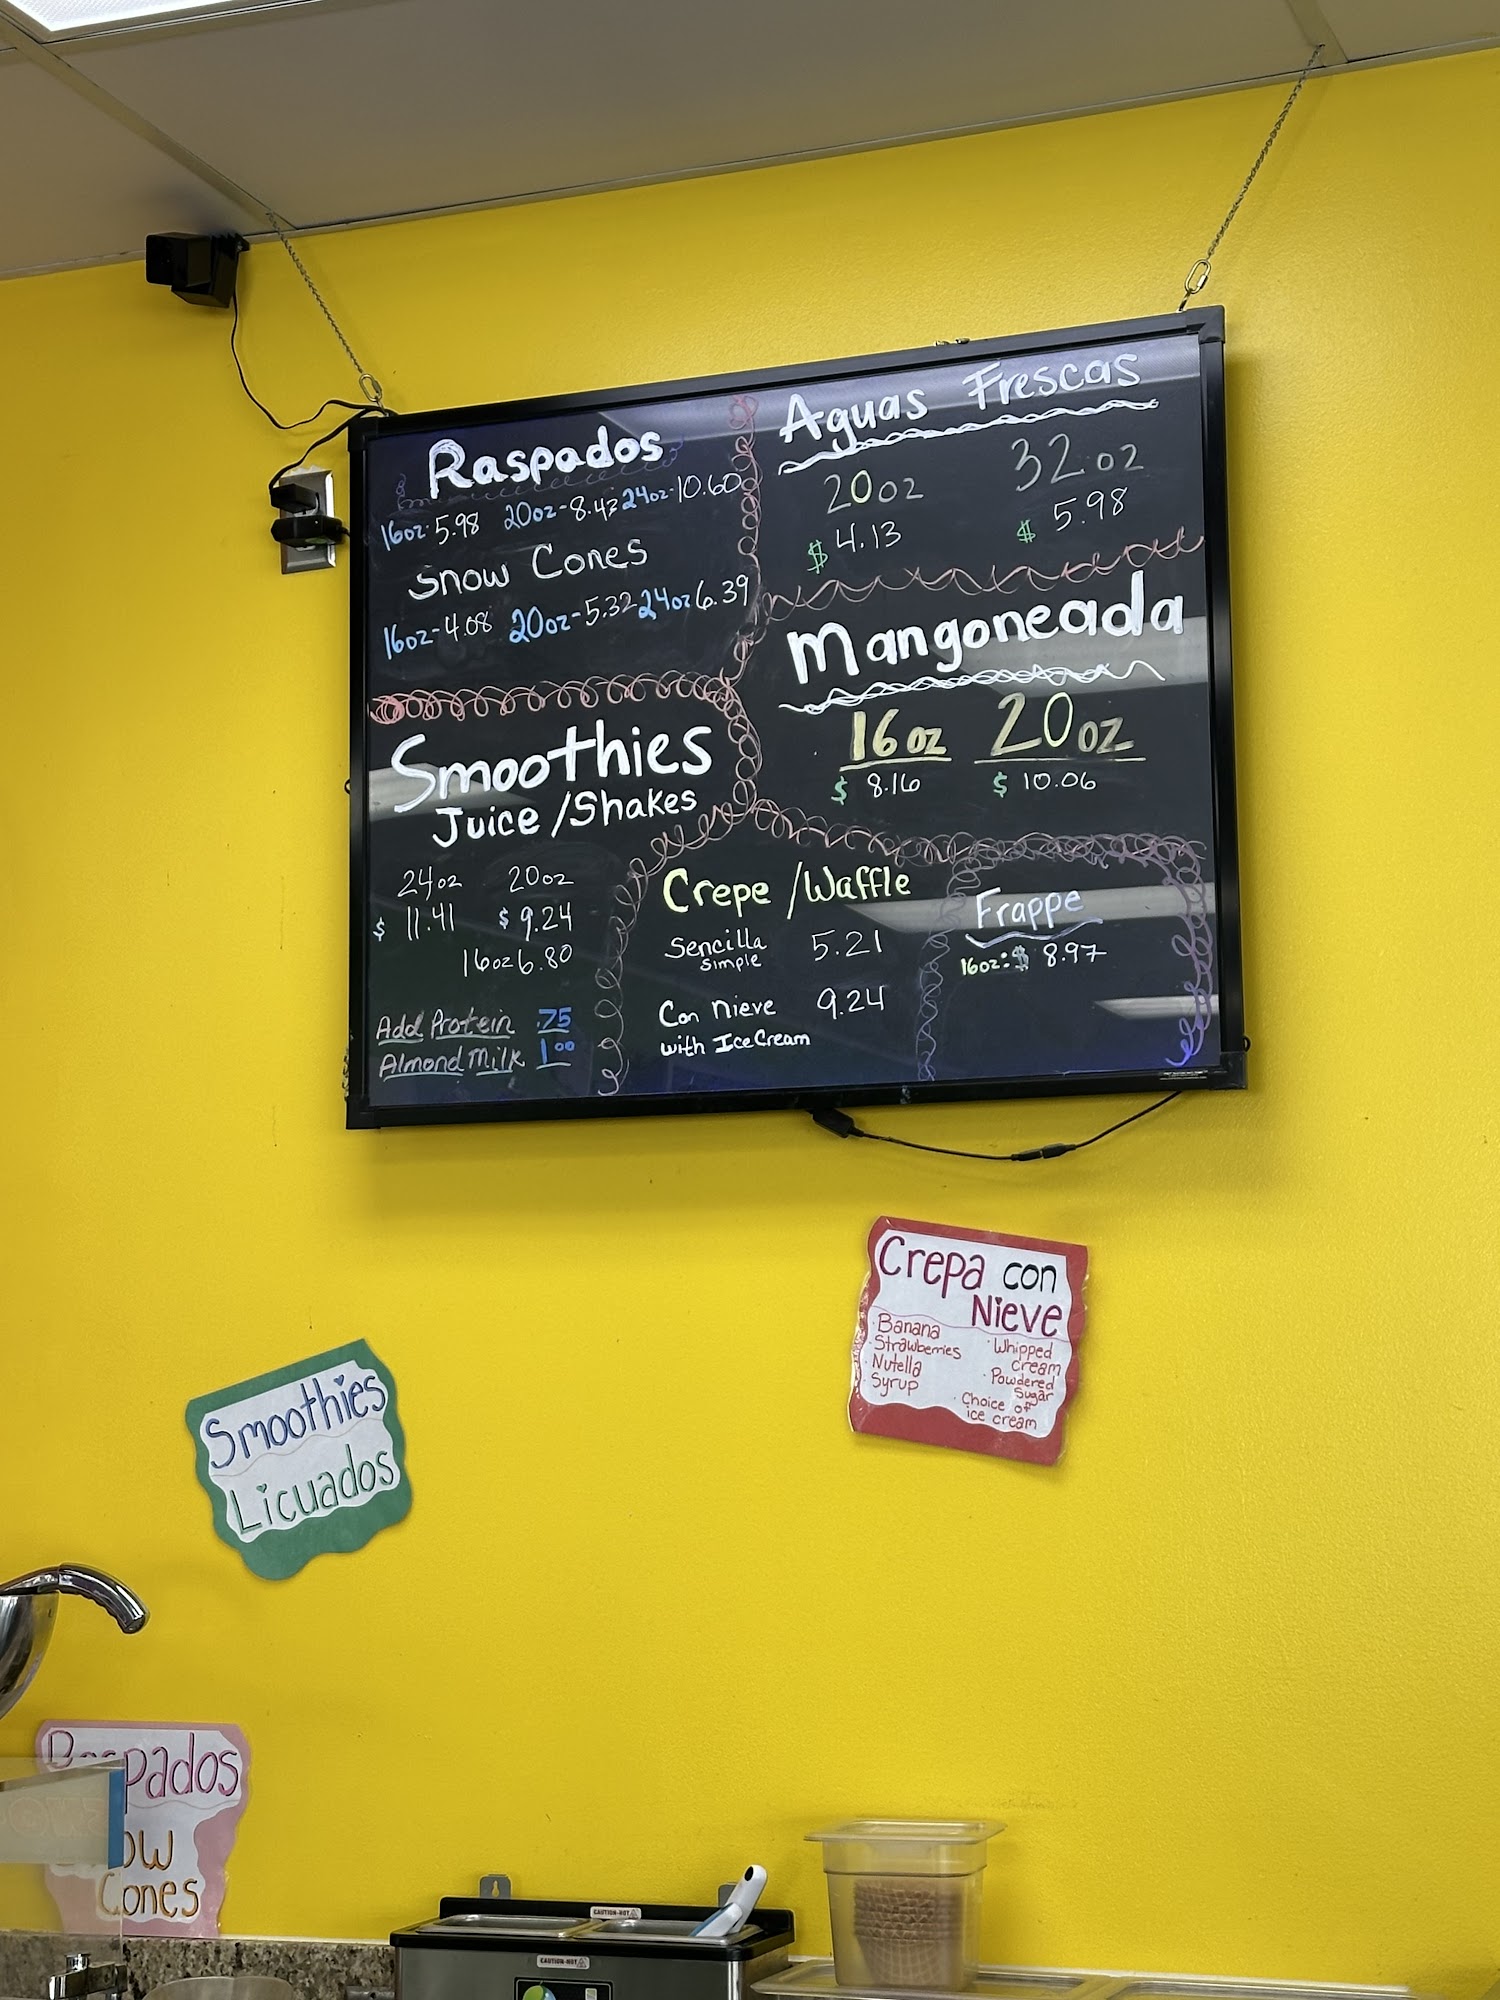 Raspados
16oz-5.98 20oz-8.43 24oz-10.60
Snow Cones
16oz-4.08 20oz-5.32 24oz 6.39
Aguas Frescas
20oz 32oz
$ 4.13 $ 5.98
Mangoneada
16oz 20oz
$ 8.16 $ 10.06
Smoothies
Juice/Shakes
24oz 20oz
$ 11.41 $ 9.24
16oz 6.80
Add Protein .75
Almond Milk 1.00
Crepe/Waffle
Sencilla 5.21
simple
Con Nieve 9.24
with Ice Cream
Frappe
16oz:$ 8.97
Crepa con
Nieve
· Banana
· Strawberries
· Nutella
· Syrup
· Whipped
cream
· Powdered
Sugar
· Choice of
ice cream
Smoothies
Licuados
Raspados
ow
Cones
CAUTION-HOT
CAUTION-HOT